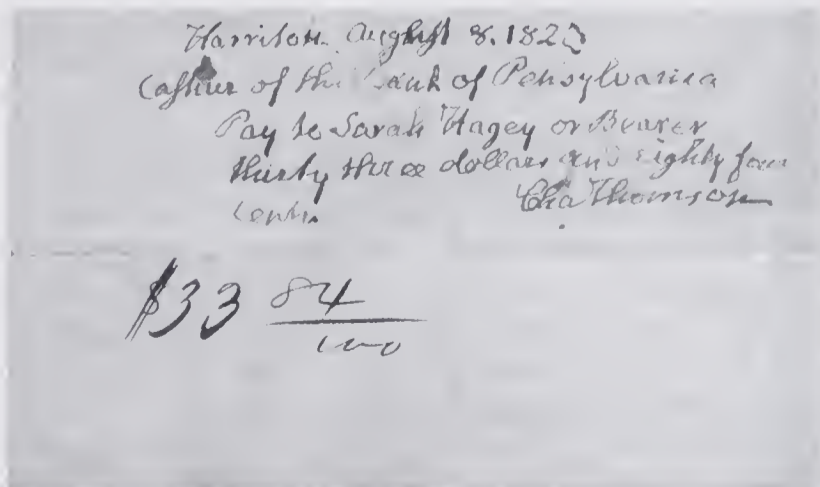 Harriton August 8. 182
Cashier of the Bank of Pensylvania
Pay to Sarah Hagey or Bearer
thirty three dollars and eighty four
cents. Cha Thomson
$33 84
100